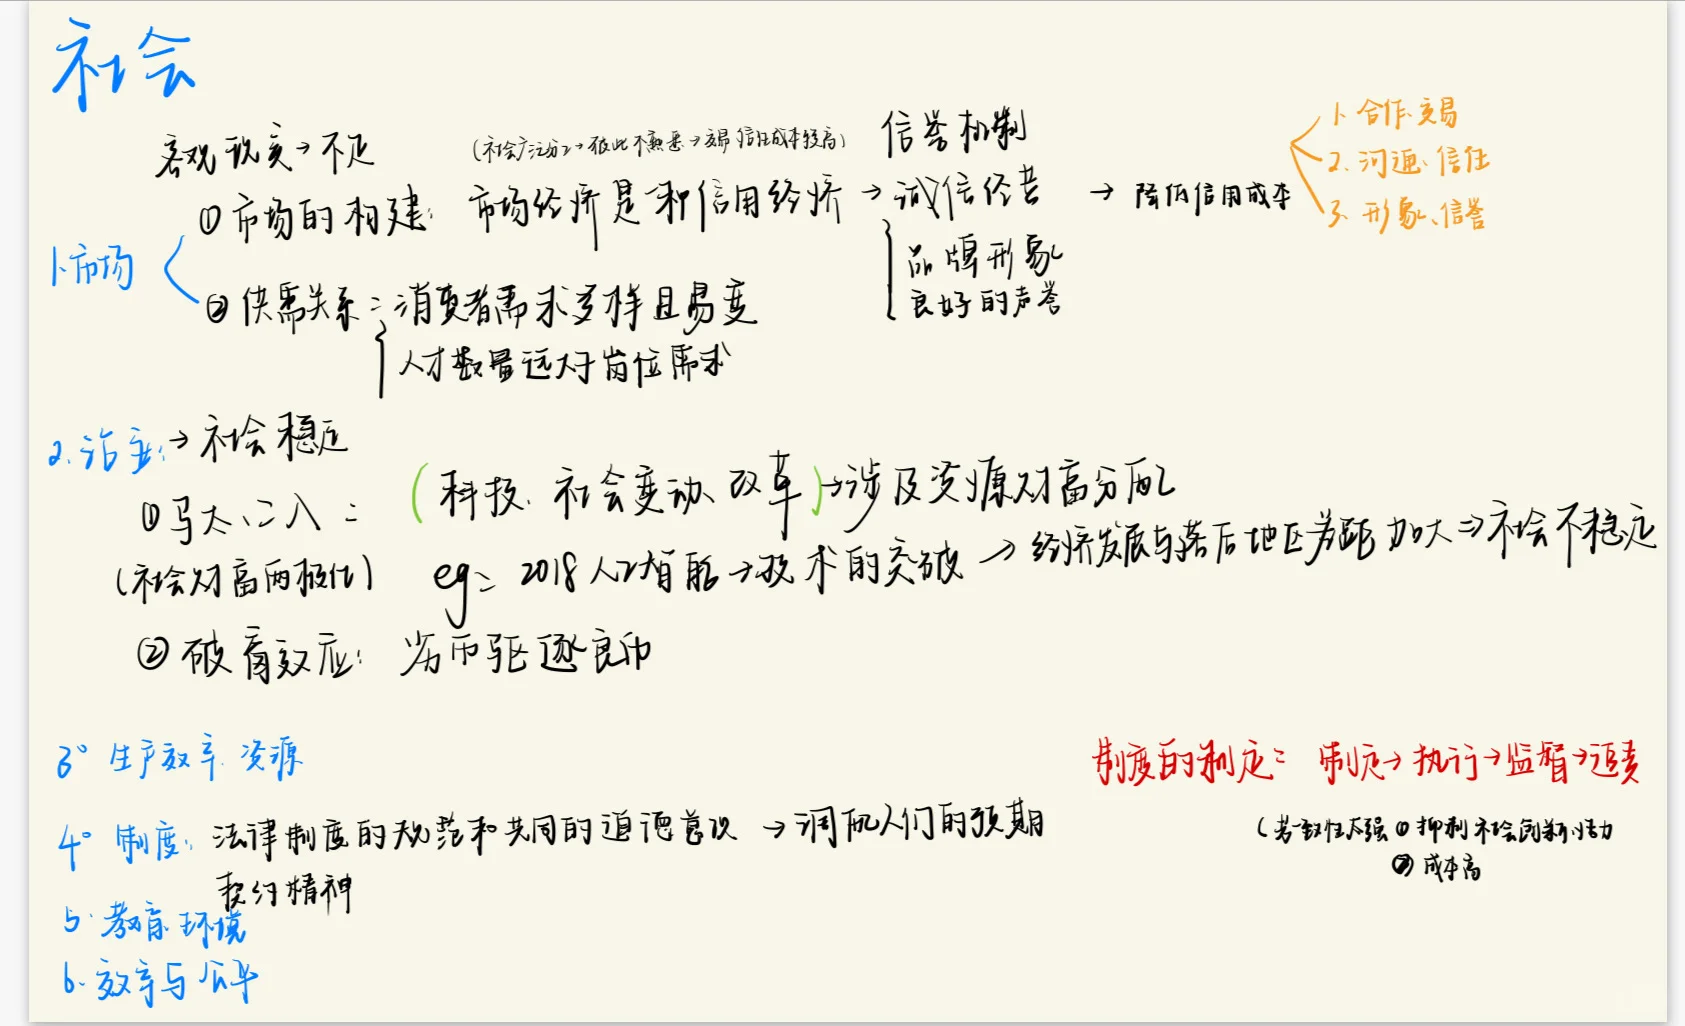 社会
客观现实→不足
(社会广泛分工→彼此不熟悉→交易信任成本较高)
信誉机制
1. 合作、交易
2. 沟通、信任
3. 形象、信誉
①市场的构建: 市场经济是一种信用经济 → 诚信经营 → 降低信用成本
品牌形象
良好的声誉
1.市场
②供需关系: 消费者需求多样且易变
人才数量远大于岗位需求
2.治安: → 社会稳定
①马太效应:
(科技、社会变动、改革)→涉及资源财富分配
(社会财富两极化)
eg: 2018人工智能→技术的突破→经济发展与落后地区差距加大⇒社会不稳定
②破窗效应: 劣币驱逐良币
3° 生产效率 资源
制度的制定: 制定→执行→监督→追责
4° 制度: 法律制度的规范和共同的道德意识 → 调配人们的预期
契约精神
(若 性太强 ① 抑制社会创新活力
② 成本高
5. 教育环境
6. 效率与公平